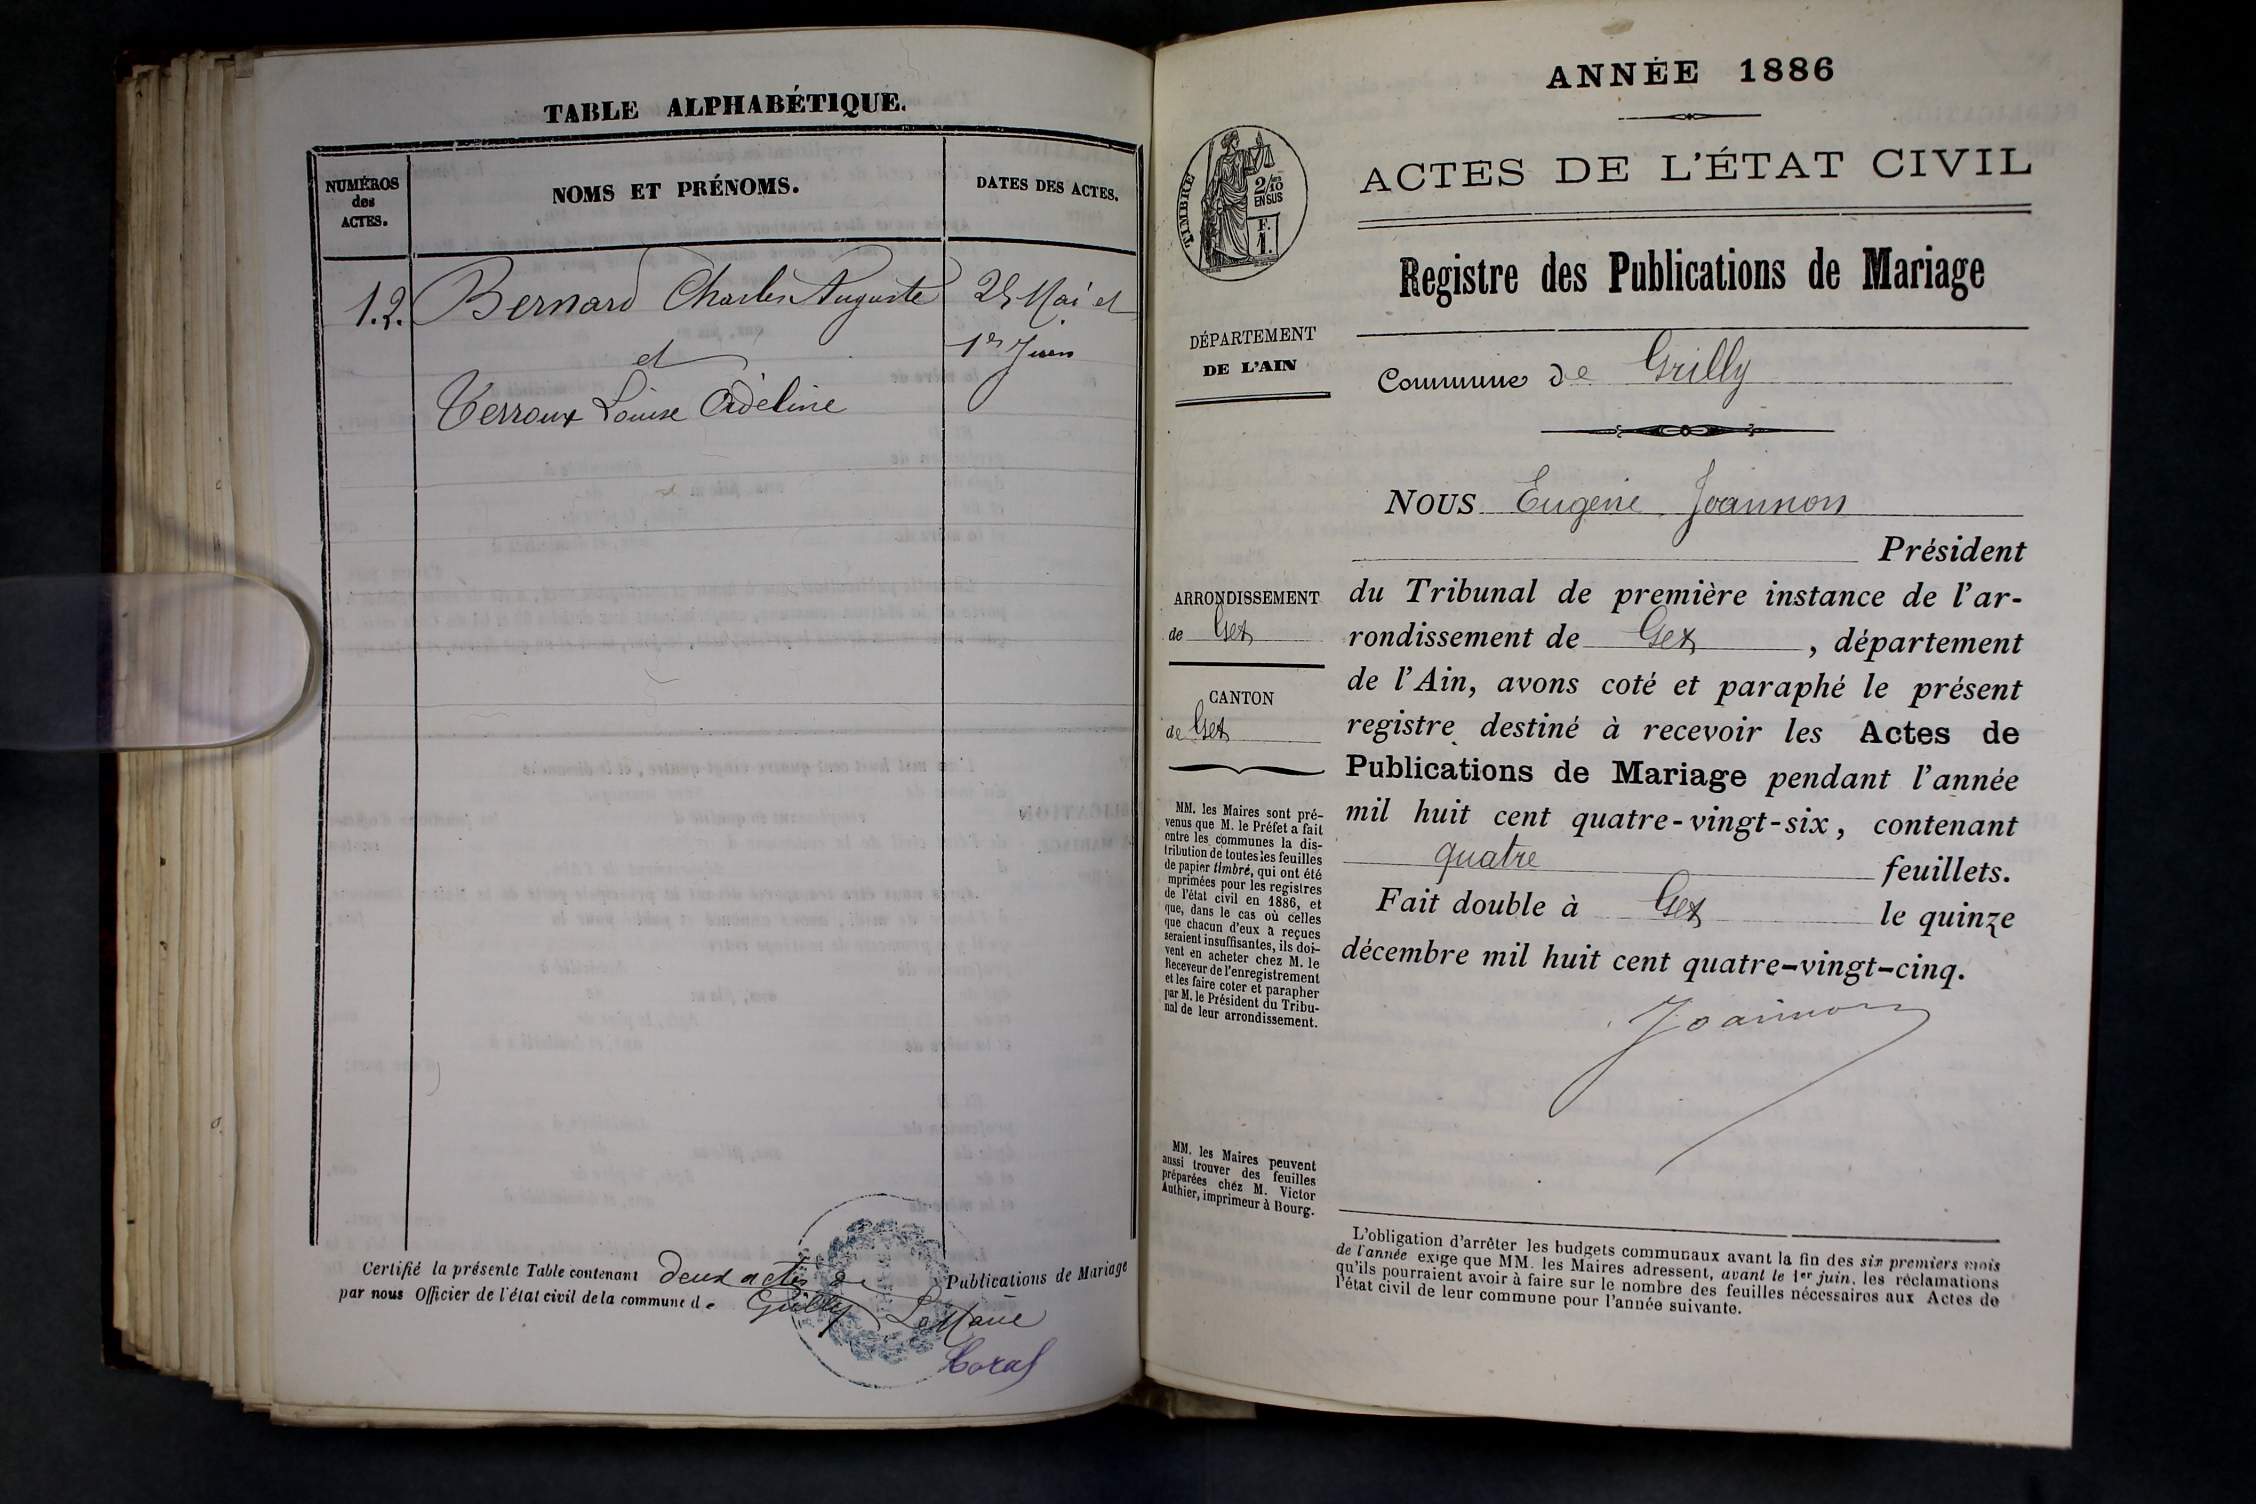 TABLE ALPHABÉTIQUE.
NUMÉROS
des
ACTES.
NOMS ET PRÉNOMS.
DATES DES ACTES.
1.2.
Bernard Charles Auguste
et
Terroux Louise Adeline
Mai et
1er Juin
Certifié la présente Table contenant deux actes de Publications de Mariage
par nous Officier de l'état civil de la commune de Grilly Le Maire
ANNÉE 1886
ACTES DE L'ÉTAT CIVIL
TIMBRE
2/10
EN SUS
F.
1.
Registre des Publications de Mariage
DÉPARTEMENT
DE L'AIN
Commune de Grilly
NOUS Eugène Joannon
Président
du Tribunal de première instance de l'ar-
rondissement de Gex, département
de l'Ain, avons coté et paraphé le présent
registre destiné à recevoir les Actes de
Publications de Mariage pendant l'année
mil huit cent quatre-vingt-six, contenant
quatre feuillets.
Fait double à Gex le quinze
décembre mil huit cent quatre-vingt-cinq.
Joannon
ARRONDISSEMENT
de Gex
CANTON
de Gex
MM. les Maires sont pré-
venus que M. le Préfet a fait
entre les communes la dis-
tribution de toutes les feuilles
de papier timbré, qui ont été
imprimées pour les registres
de l'état civil en 1886, et
que, dans le cas où celles
que chacun d'eux a reçues
seraient insuffisantes, ils doi-
vent en acheter chez M. le
Receveur de l'enregistrement
et les faire coter et parapher
par M. le Président du Tribu-
nal de leur arrondissement.
MM. les Maires peuvent
aussi trouver des feuilles
préparées chez M. Victor
Authier, imprimeur à Bourg.
L'obligation d'arrêter les budgets communaux avant la fin des six premiers mois
de l'année exige que MM. les Maires adressent, avant le 1er juin, les réclamations
qu'ils pourraient avoir à faire sur le nombre des feuilles nécessaires aux Actes de
l'état civil de leur commune pour l'année suivante.